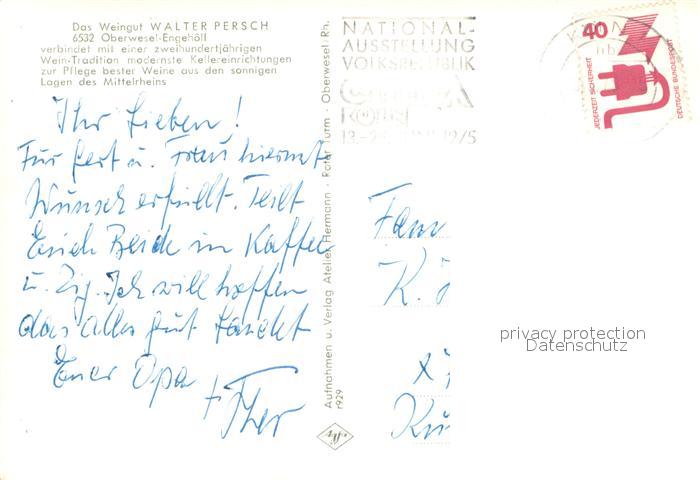 Das Weingut WALTER PERSCH
6532 Oberwesel-Engehöll
verbindet mit einer zweihundertjährigen
Wein-Tradition modernste Kellereinrichtungen
zur Pflege bester Weine aus den sonnigen
Lagen des Mittelrheins
Ihr Lieben!
Für Gert u. Frau hiermit
Wunsch erfüllt. Teilt
Euch Beide in Kaffee
u. Zig. Ich will hoffen
das alles gut
Euer Opa
+
Aufnahmen u. Verlag Atelier Hermann · Roter Turm · Oberwesel Rh.
r929
Agfa
NATIONAL-
AUSSTELLUNG
VOLKSREPUBLIK
KÖLN
40
JEDERZEIT SICHERHEIT
DEUTSCHE BUNDESPOST
Fam
K.
privacy protection
Datenschutz